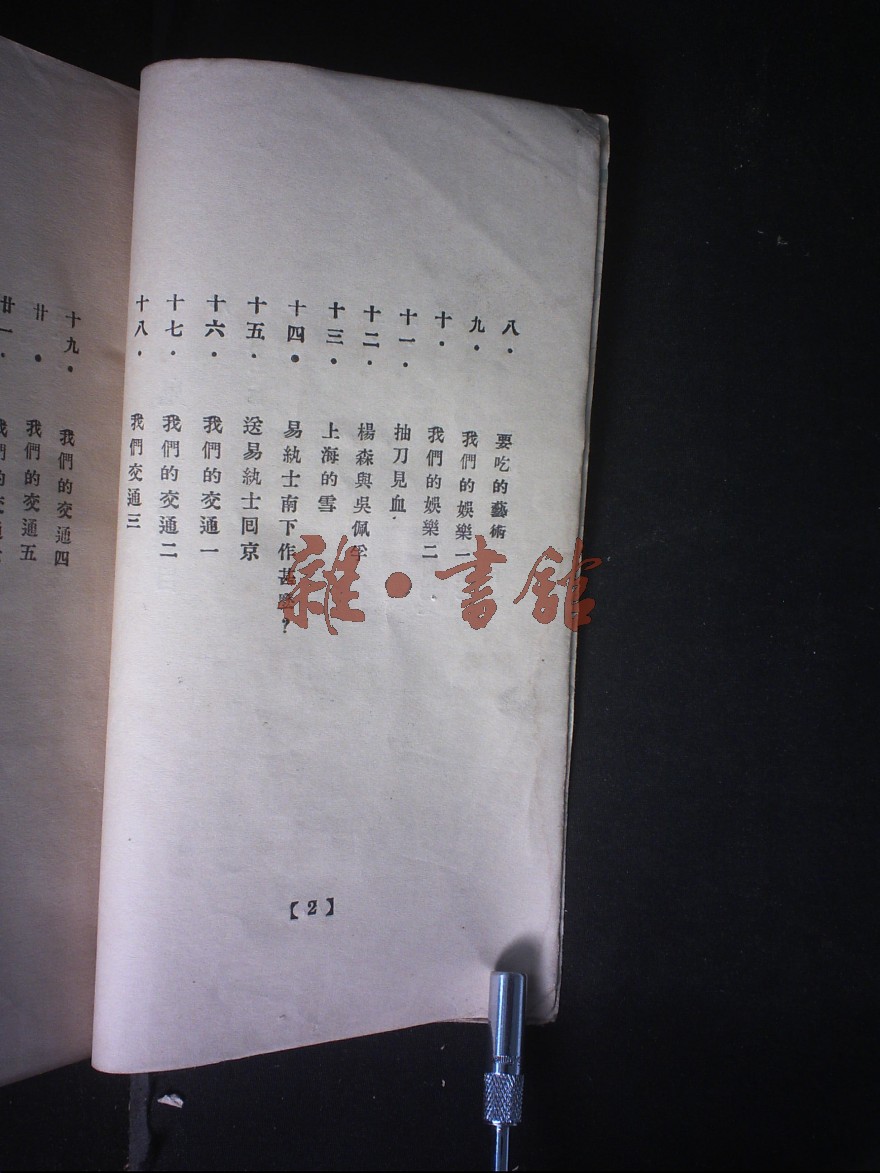 八．要吃的藝術
九．我們的娛樂一
十．我們的娛樂二
十一．抽刀見血
十二．楊森與吳佩孚
十三．上海的雪
十四．易紈士南下作甚麼？
十五．送易紈士回京
十六．我們的交通一
十七．我們的交通二
十八．我們交通三
【2】
十九．我們的交通四
廿．我們的交通五
廿一．我們的交通
雜・書館